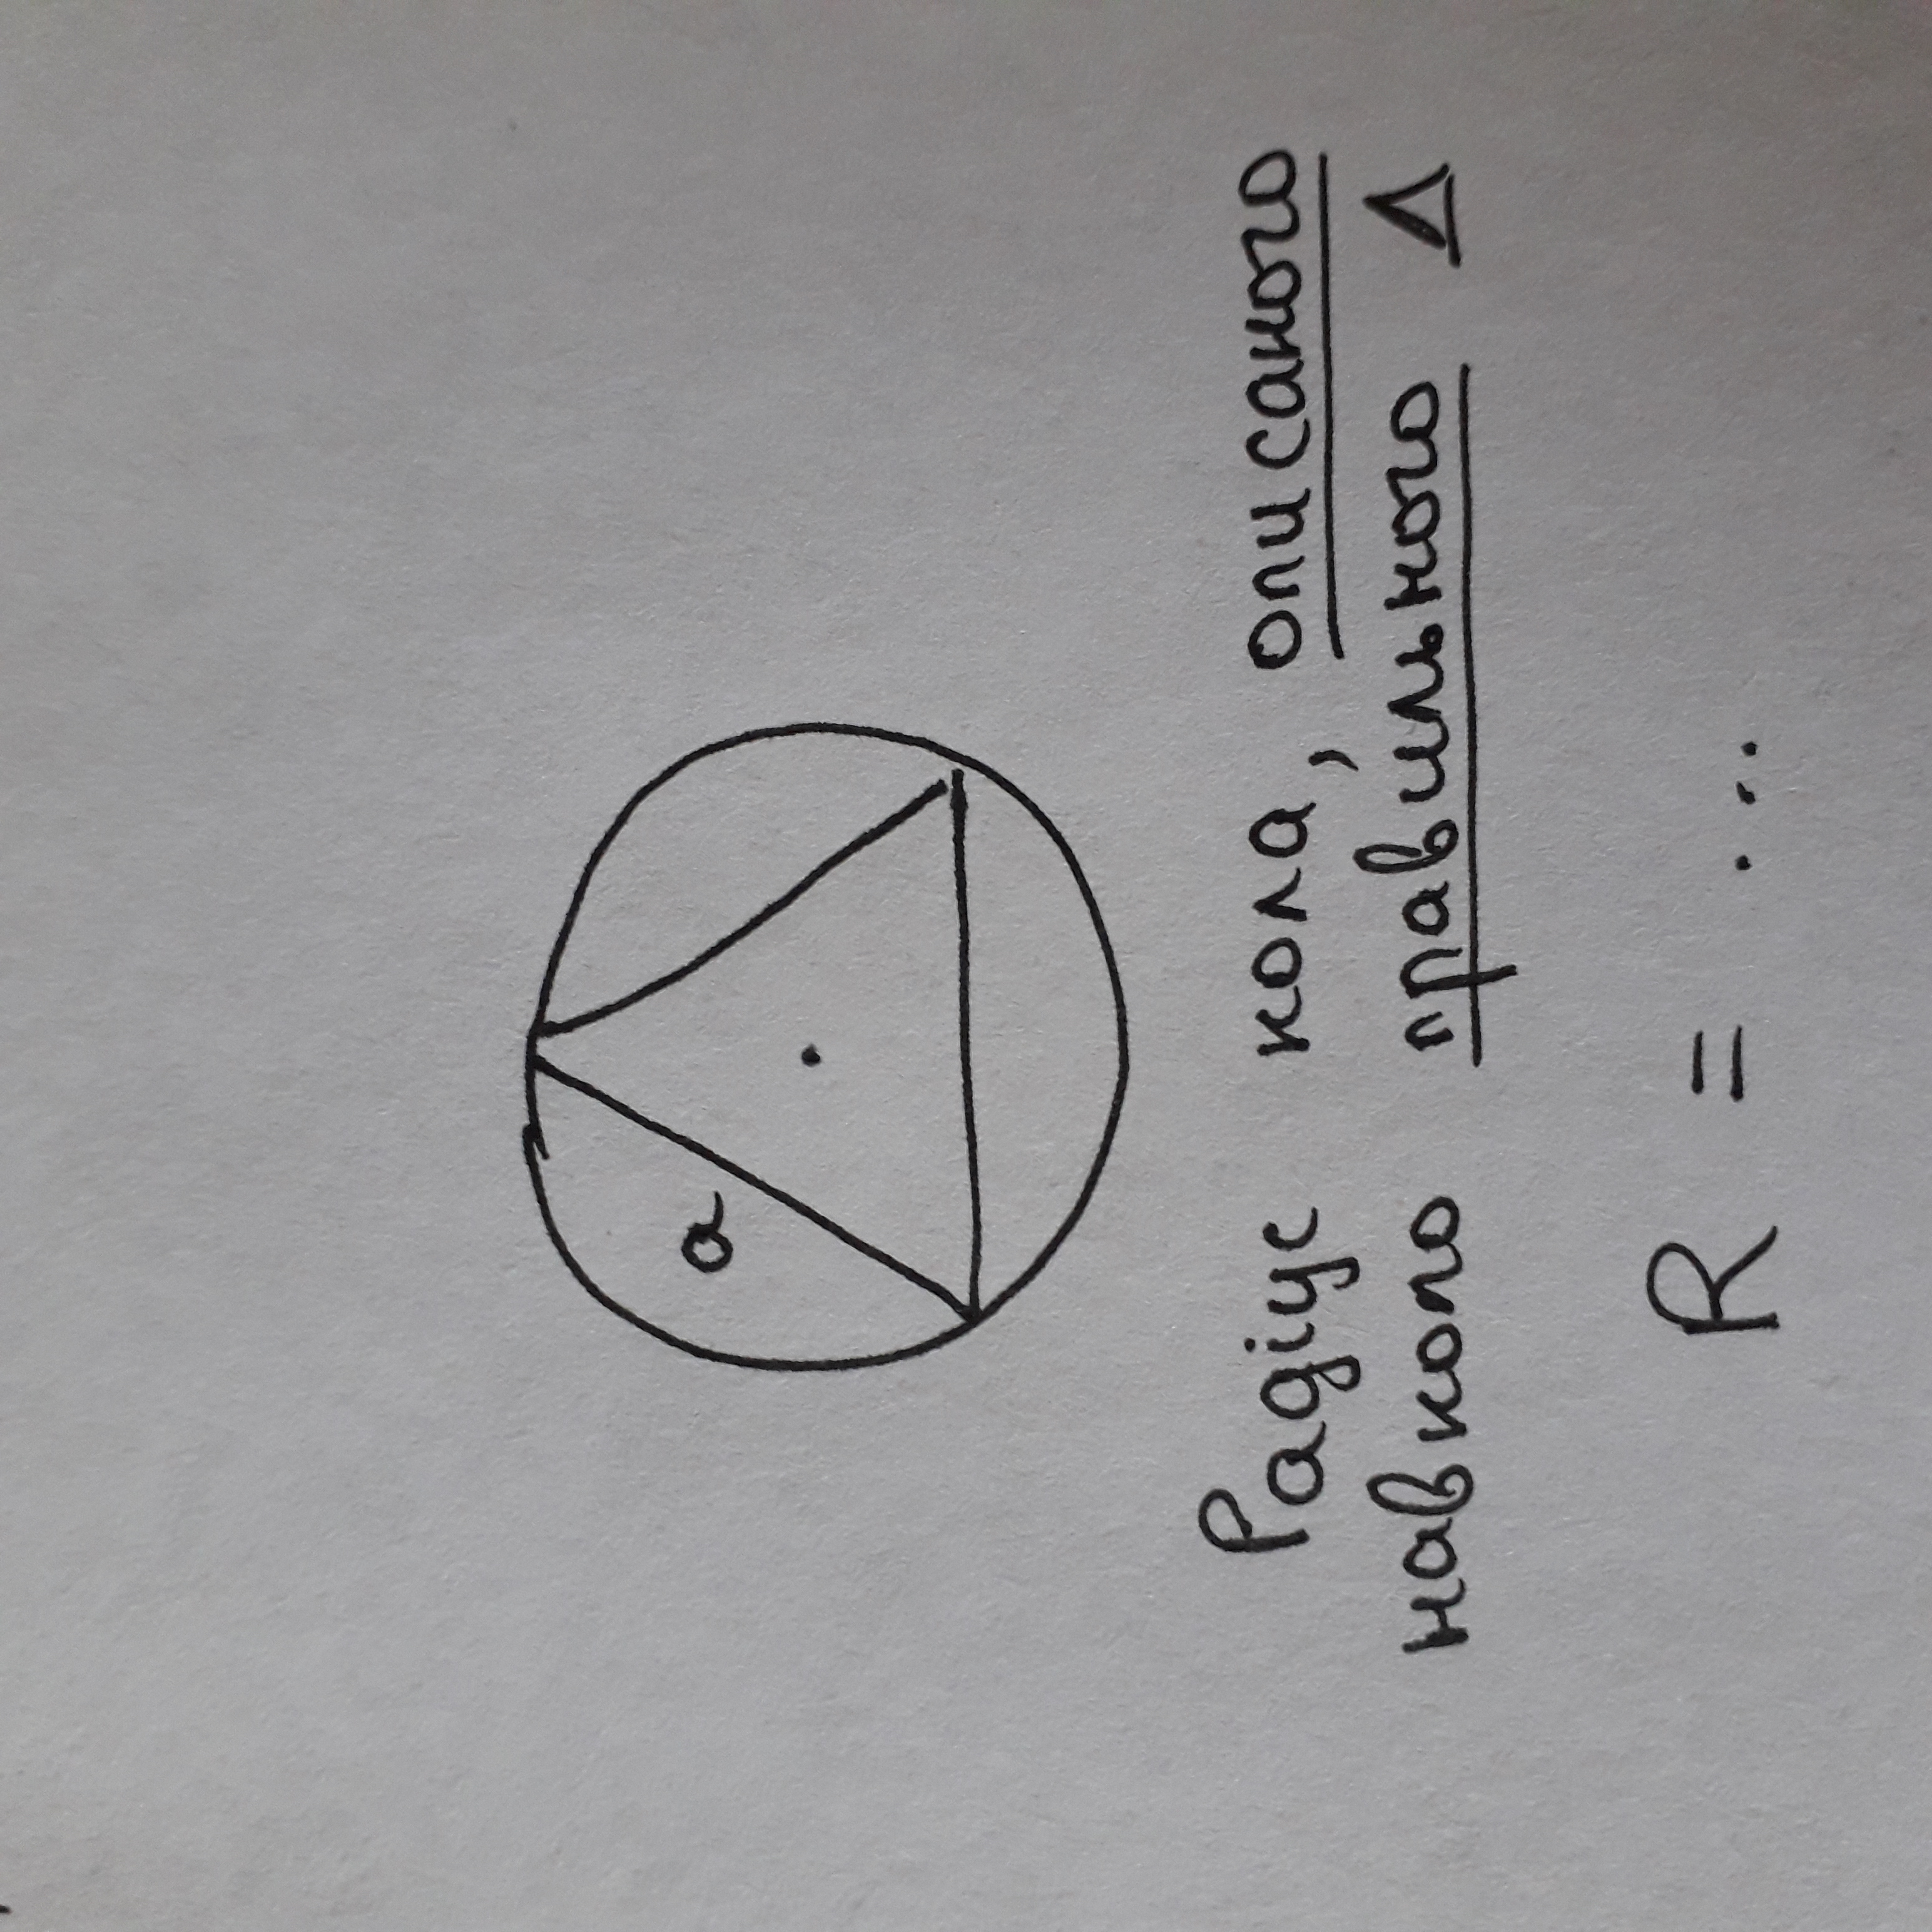 a
Радіус кола, описаного
навколо правильного Δ
R = ...